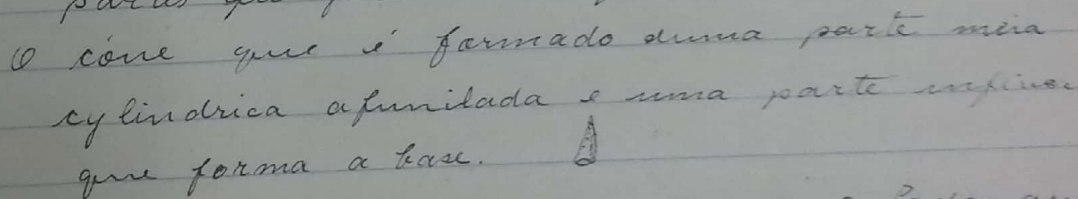 O cóne que é formado duma parte meia
cylindrica afunilada e uma parte
que forma a base.